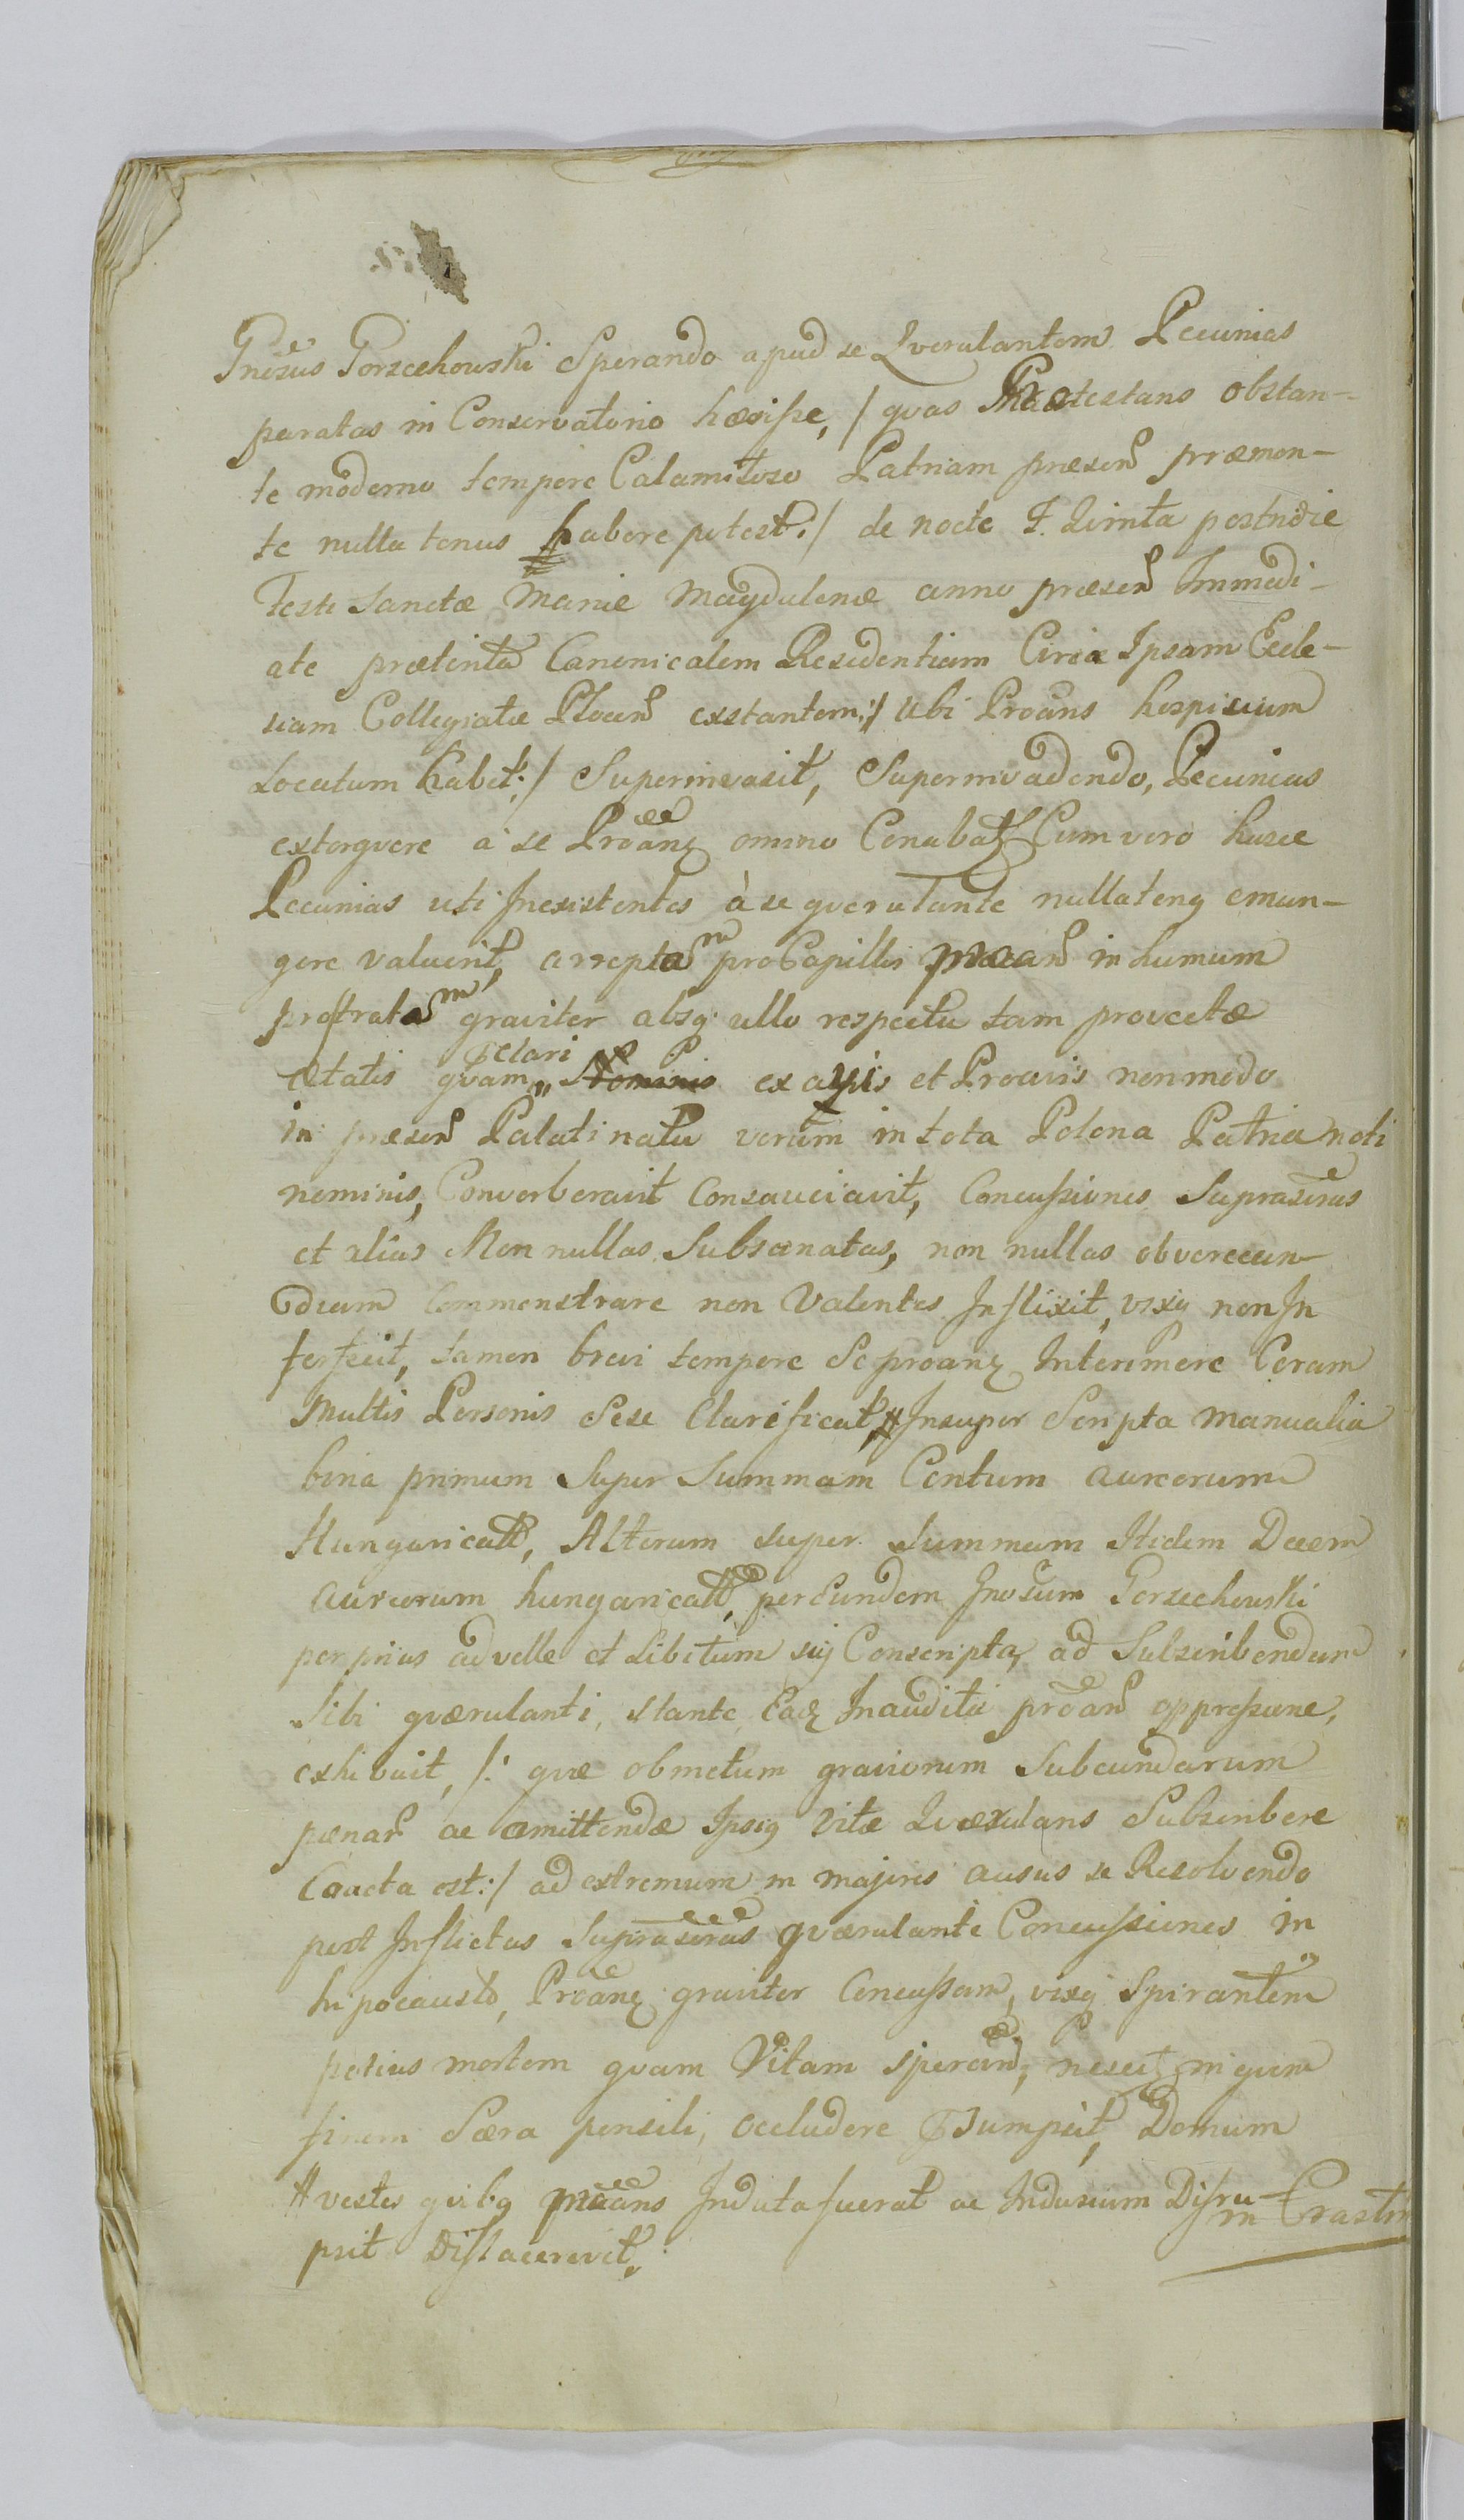 Gnosus Gorzechowski Sperando apud se Querulantem Pecunias
paratas in Conservatorio haesisse, / quas Protestans obstan-
te moderno tempore Calamitoso Patriam praesen praemen-
te nulla tenus habere potest :/ de nocte F. Quinta postridie
Festi Sanctae Mariae Magdalenae anno praesen Immedi-
ate praeterita Canonicalem Residentiam Circa Ipsam Eccle-
siam Collegiatae Plocen exstantem :/ Ubi Proans hospicium
Locatum habet :/ Superinvasit, Superinvadendo, Pecunias
extorqvere a se Proane omnino Conabat Cum vero hasce
Pecunias uti Inexistentes à se querulante nullateng emun-
gere valuerit, arreptam pro Capillis proan in humum
prostratam graviter absq ullo respectu tam provectae
aetatis quam praeclari Nominis ex avis et Proavis nonmodo
in praesen Palatinatu verum in tota Polona Patria noti
nominis, Converberavit Consauciavit, Concussiones Suprascras
et alias Non nullas Subsanatas, non nullas ob verecun-
diam Commonstrare non Valentes Inflixit, vixq non In
terfecit, tamen brevi tempore Se proane Interimere Coram
Multis Personis Sese Clarificat, # Insuper Scripta manualia
bina primum Super Summam Centum aureorum
Hungaricall, Alterum super Summam Itidem Decem
aureorum hungaricall, per Eundem Gnosum Gorzechowski
per prius ad velle et Libitum sui Conscripta, ad Subscribendum
Sibi qværulanti, stante Eadq Inaudita proan oppressione,
exhibuit, /: quae ob metum graviorum Subeundarum
paenar ac amittendae Ipsiq Vitae Quærulans Subscribere
Coacta est :/ ad extremum in majores ausus se Resolvendo
post Inflictas Suprascras qværulante Concussiones in
hipocausto, Proane graviter Concussam, vixq Spirantem
potius mortem quam Vitam speran, nescit in quem
finem Sera pensili, occludere praesumpsit, Domum
# vestes quibq proans Induta fuerat ac Indusium Disru-
psit Dislaceravit.
in Crastin